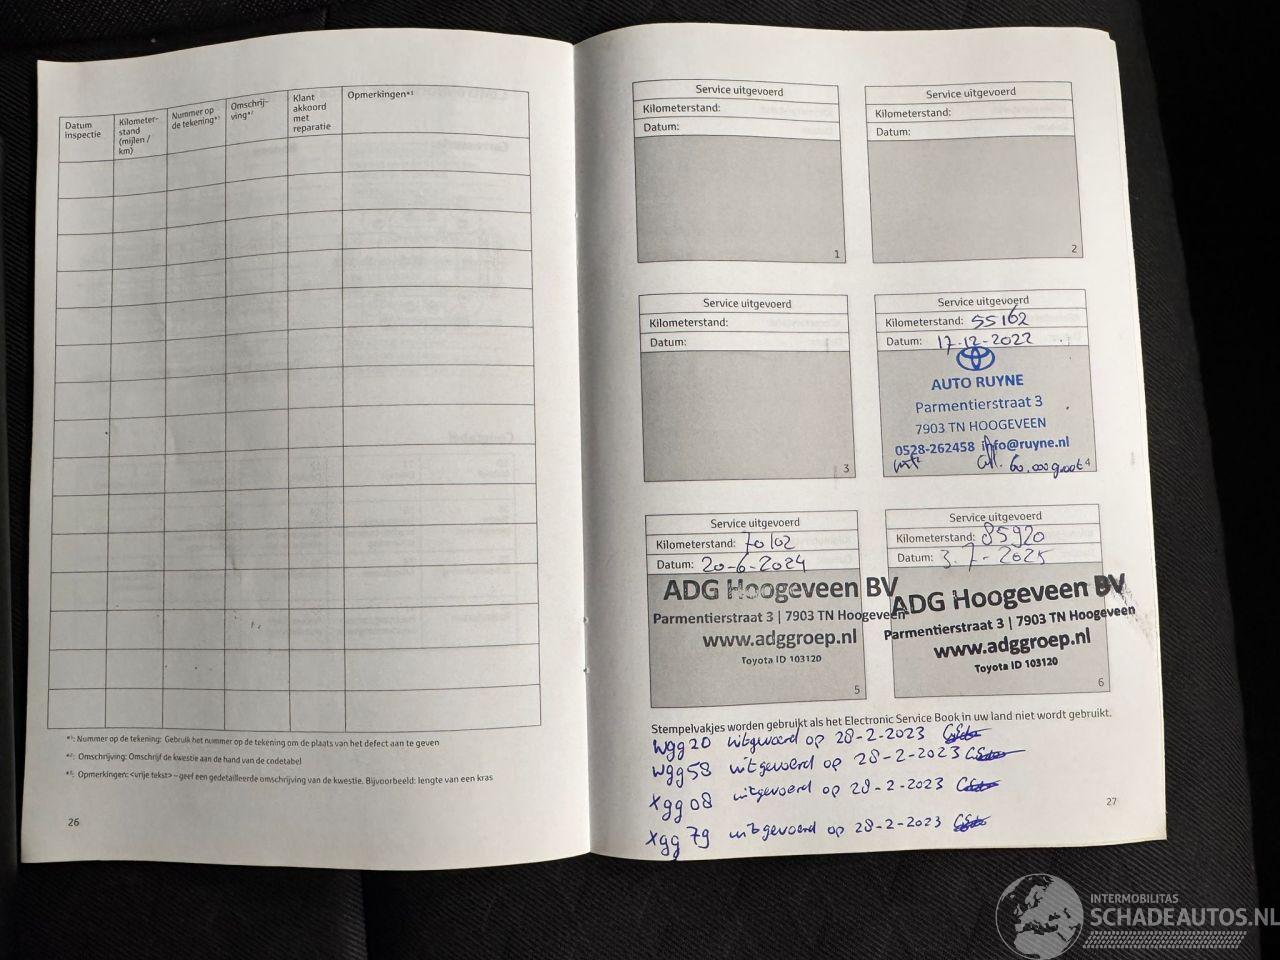 Datum inspectie
Kilometer-stand (mijlen / km)
Nummer op de tekening*¹
Omschrij-ving*²
Klant akkoord met reparatie
Opmerkingen*³
*¹: Nummer op de tekening: Gebruik het nummer op de tekening om de plaats van het defect aan te geven
*²: Omschrijving: Omschrijf de kwestie aan de hand van de codetabel
*³: Opmerkingen: <vrije tekst> – geef een gedetailleerde omschrijving van de kwestie. Bijvoorbeeld: lengte van een kras
26
Service uitgevoerd
Kilometerstand:
Datum:
1
Service uitgevoerd
Kilometerstand:
Datum:
2
Service uitgevoerd
Kilometerstand:
Datum:
3
Service uitgevoerd
Kilometerstand: 55162
Datum: 17-12-2022
AUTO RUYNE
Parmentierstraat 3
7903 TN HOOGEVEEN
0528-262458 info@ruyne.nl
60.000 groot
4
Service uitgevoerd
Kilometerstand: 70102
Datum: 20-6-2024
ADG Hoogeveen BV
Parmentierstraat 3 | 7903 TN Hoogeveen
www.adggroep.nl
Toyota ID 103120
5
Service uitgevoerd
Kilometerstand: 85920
Datum: 3-7-2025
ADG Hoogeveen BV
Parmentierstraat 3 | 7903 TN Hoogeveen
www.adggroep.nl
Toyota ID 103120
6
Stempelvakjes worden gebruikt als het Electronic Service Book in uw land niet wordt gebruikt.
wgg20 uitgevoerd op 28-2-2023
wgg58 uitgevoerd op 28-2-2023
xgg08 uitgevoerd op 28-2-2023
xgg79 uitgevoerd op 28-2-2023
27
INTERMOBILITAS
SCHADEAUTOS.NL